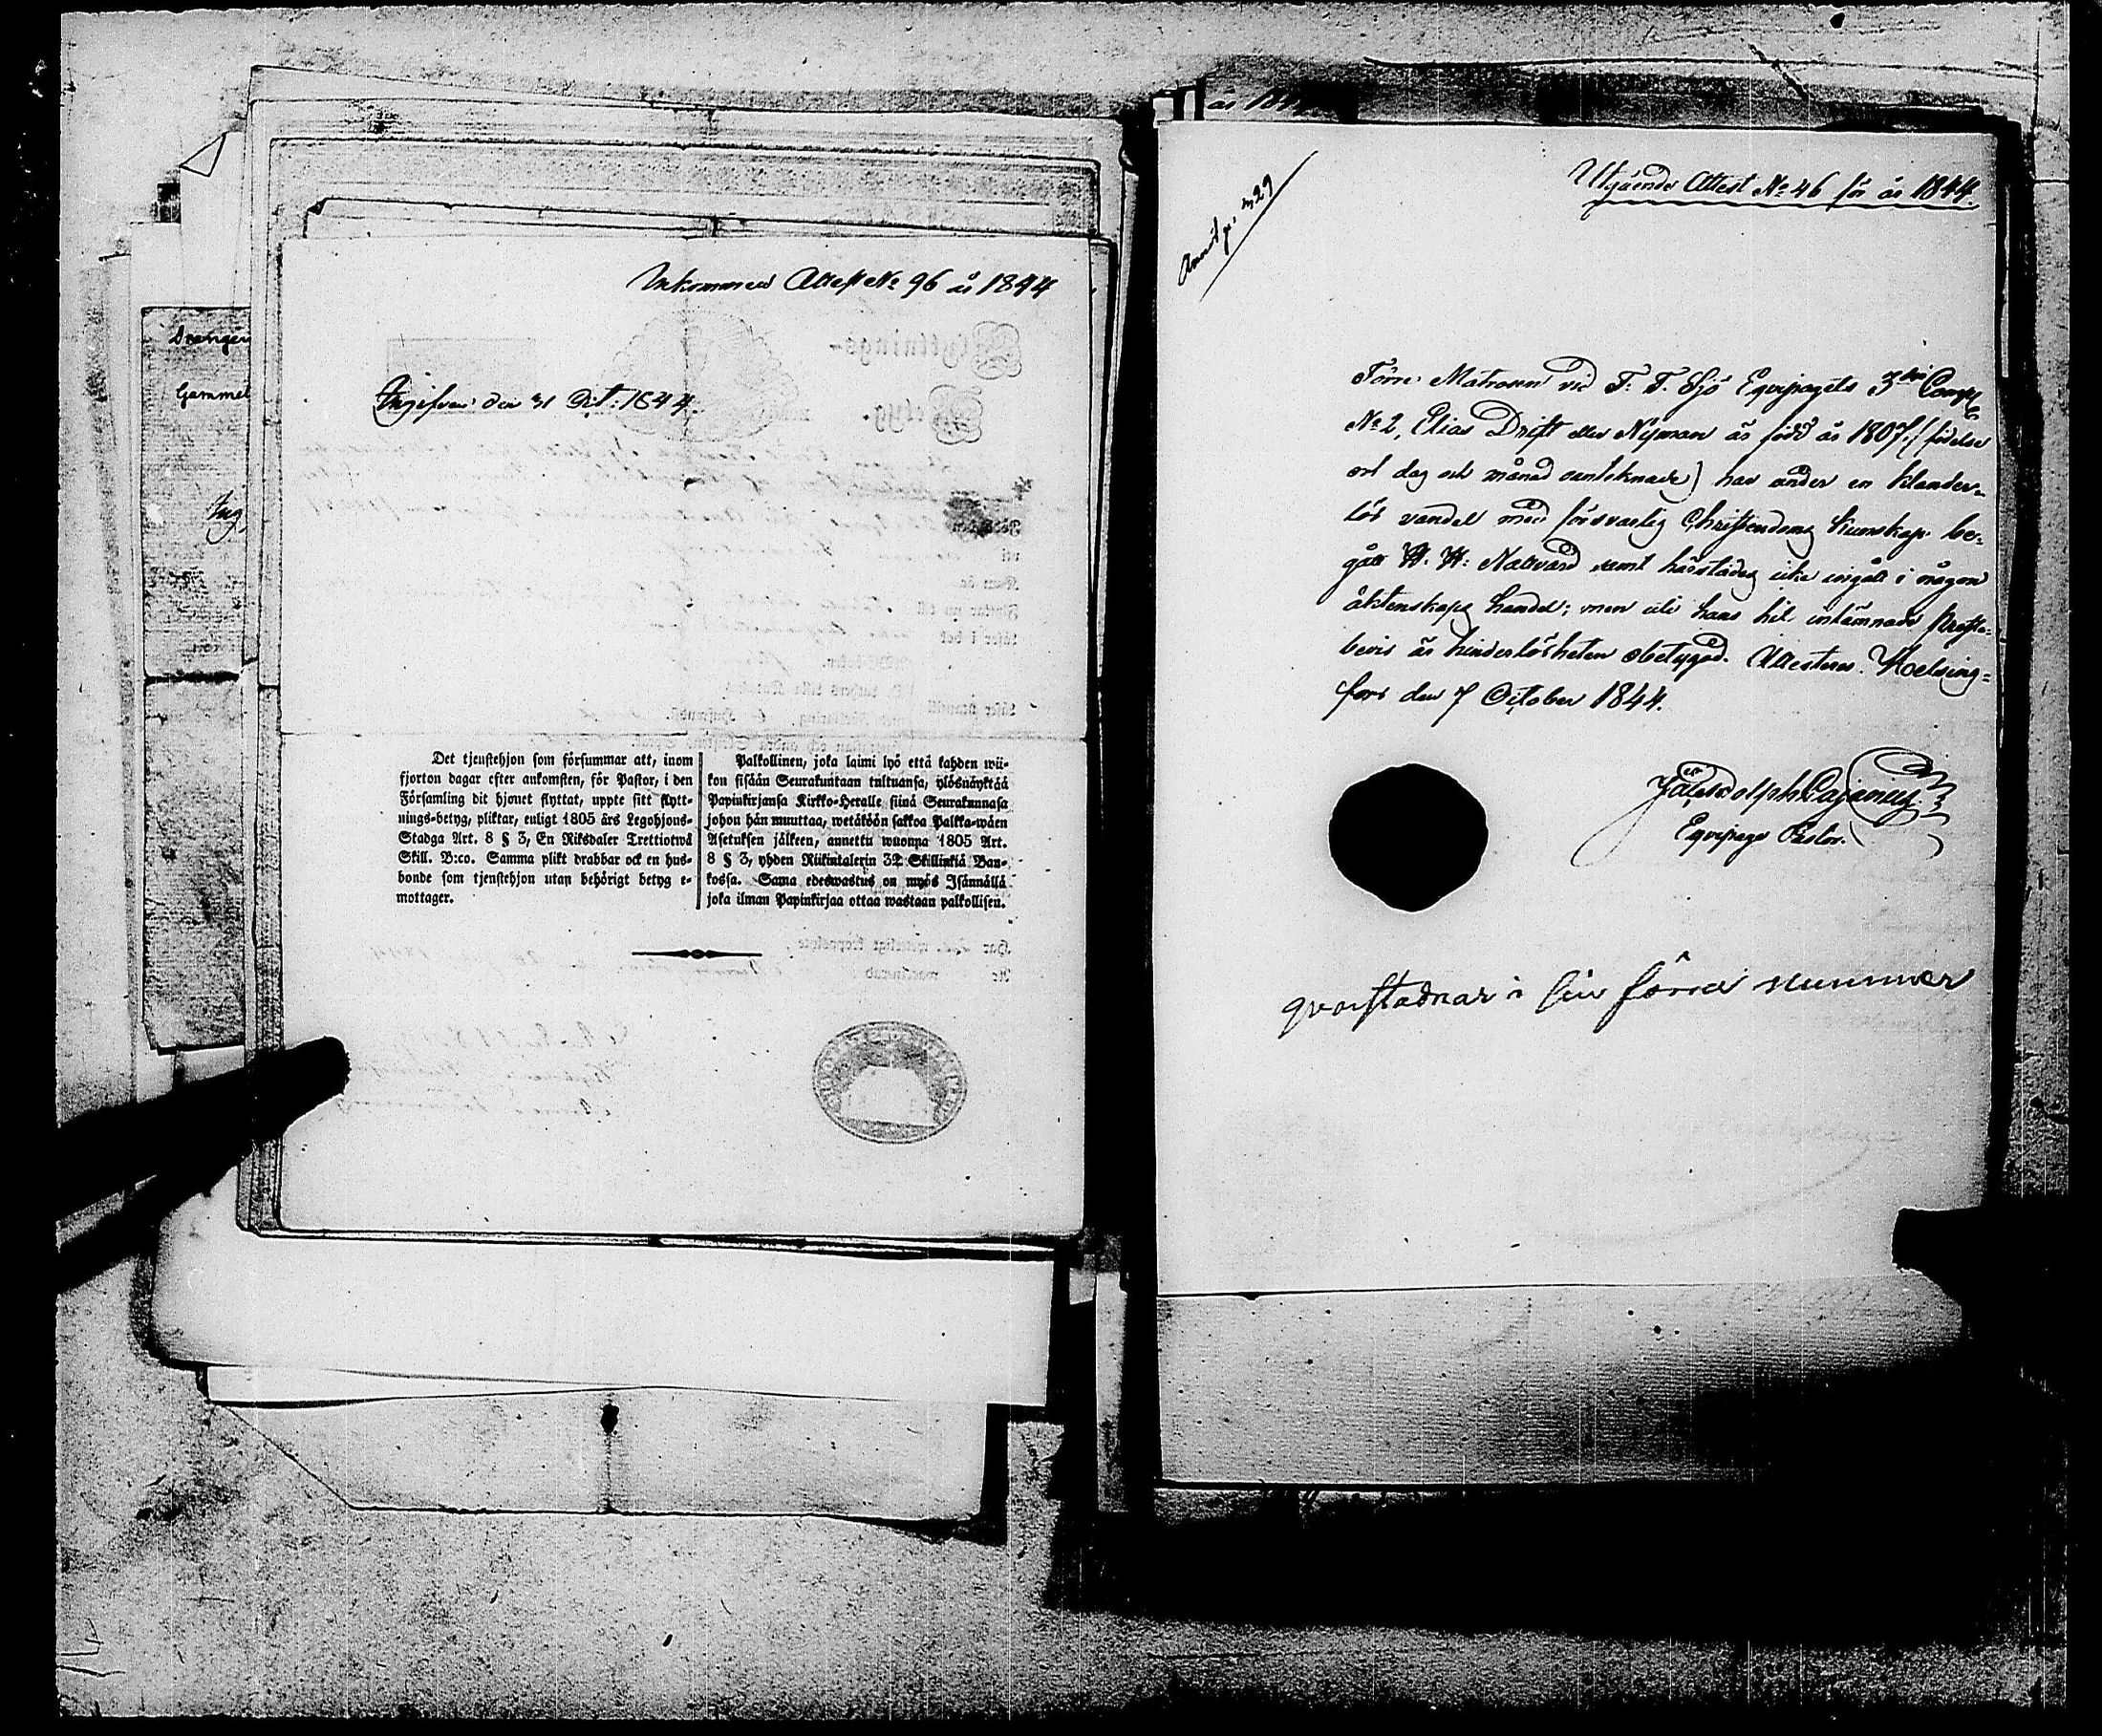 Inkommen Attest No 96 år 1844
Ingifven den 31 Oct: 1844.
Det tjenstehjon som försummar att, inom
fjorton dagar efter ankomsten, för Pastor, i den
Församling dit hjonet flyttat, uppte sitt flytt-
nings-betyg, pliktar, enligt 1805 års Legohjons-
Stadga Art. 8 § 3, En Riksdaler Trettiotwå
Skill. B:co. Samma plikt drabbar ock en hus-
bonde som tjenstehjon utan behörigt betyg e-
mottager.
Palkollinen, joka laimi lyö että kahden wii-
kon sisään Seurakuntaan tultuansa, ylösnäyttää
Papinkirjansa Kirkko-Heralle siinä Seurakunnasa
johon hän muuttaa, wetäköön sakkoa Palkka-wäen
Asetuksen jälkeen, annettu wuonna 1805 Art.
8 § 3, yhden Riikintalerin 32 Skillinkiä Ban-
kossa. Sama edeswastus on myös Isännällä
joka ilman Papinkirjaa ottaa wastaan palkollisen.
Drengen
Gammel
Ing
år 184
Utgående Attest No 46 för år 1844.
Förre Matrosen vid F. F. Sjö Eqvipagets 3dje Comp
No 2, Elias Drift eller Nyman är född år 1807, (födelse
ort dag och månad oantecknade) har under en klander-
lös vandel med försvarlig Christendoms kunskap be-
gått H. H. Nattvard samt härstädes icke ingått i någon
äktenskaps handel; men uti hans hit inlämnade Prester-
bevis är hinderlösheten obetygad. Attesteras. Helsing-
fors den 7 October 1844.
Eqvipage Pastor.
qvarstadnar i sin förra nummer